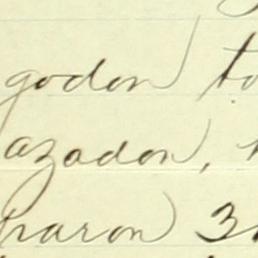 godon to
azadon,
haron 3